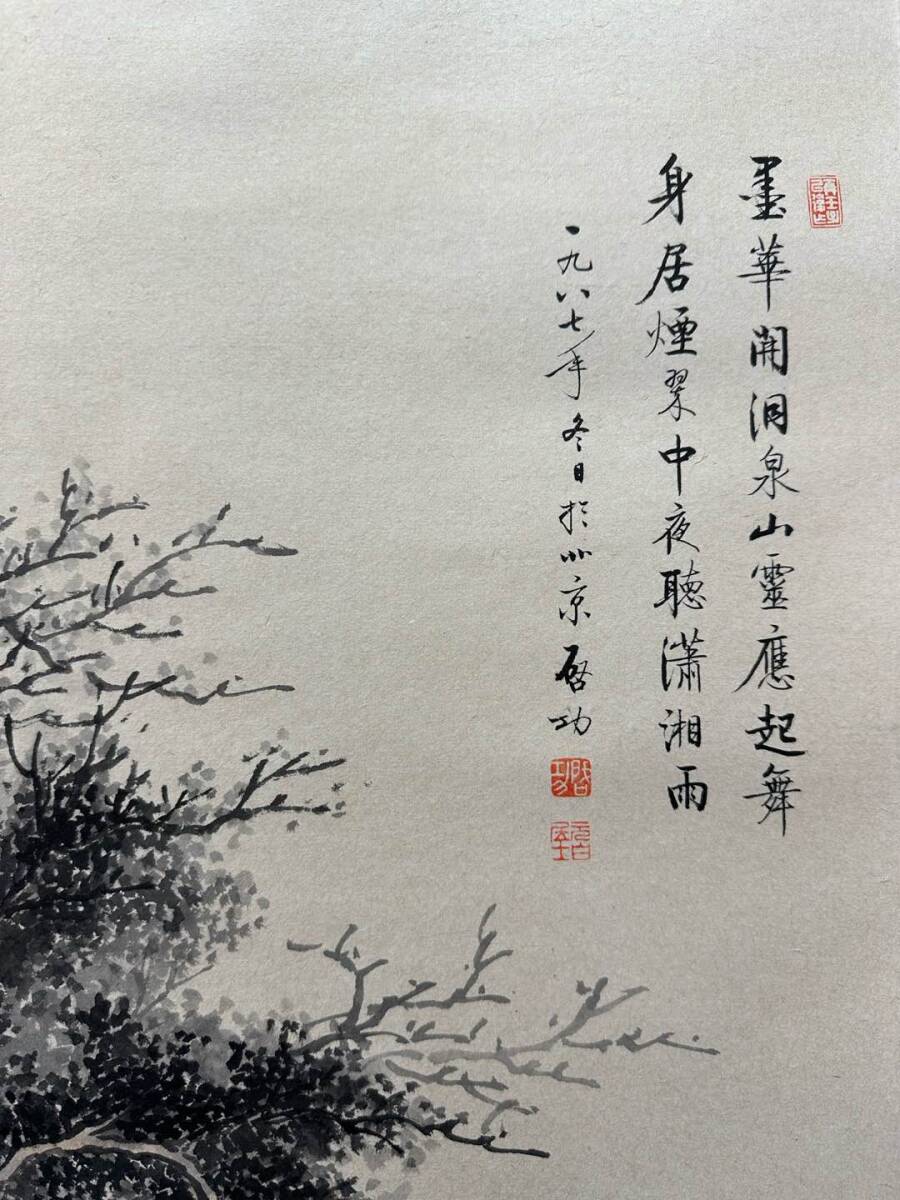 墨華開洞泉山靈應起舞
身居煙翠中夜聽瀟湘雨
一九八七年冬日於北京啓功
啓功
元白